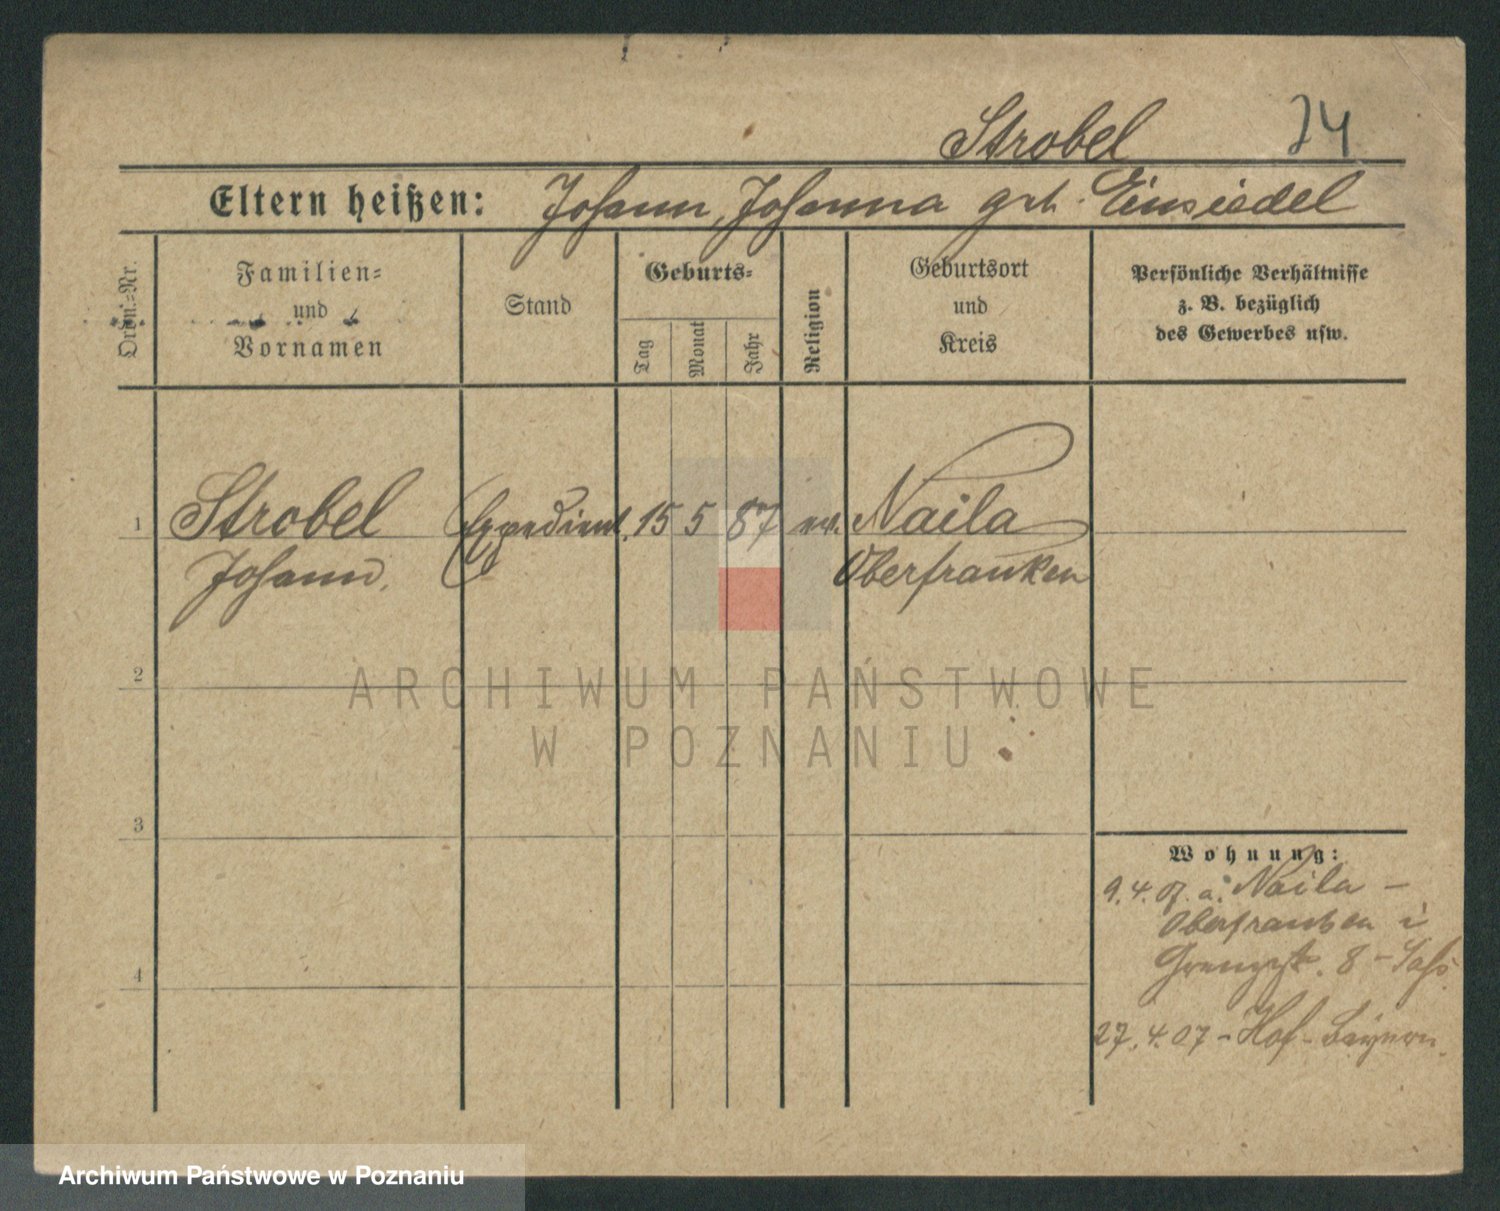 Strobel 74
Eltern heißen: Johann, Johanna geb. Einsiedel
Ordn.-Nr.
Familien-
und
Vornamen
Stand
Geburts-
Tag
Monat
Jahr
Religion
Geburtsort
und
Kreis
Persönliche Verhältnisse
z. B. bezüglich
des Gewerbes usw.
1 Strobel Expedient. 15 5 87 ev. Naila
Johann. Oberfranken
2
ARCHIWUM PAŃSTWOWE
W POZNANIU
3
Wohnung:
9.4.07. a. Naila -
Oberfranken i
Grenzstr. 8 -
4
27.4.07 - Hof - Bayern.
Archiwum Państwowe w Poznaniu